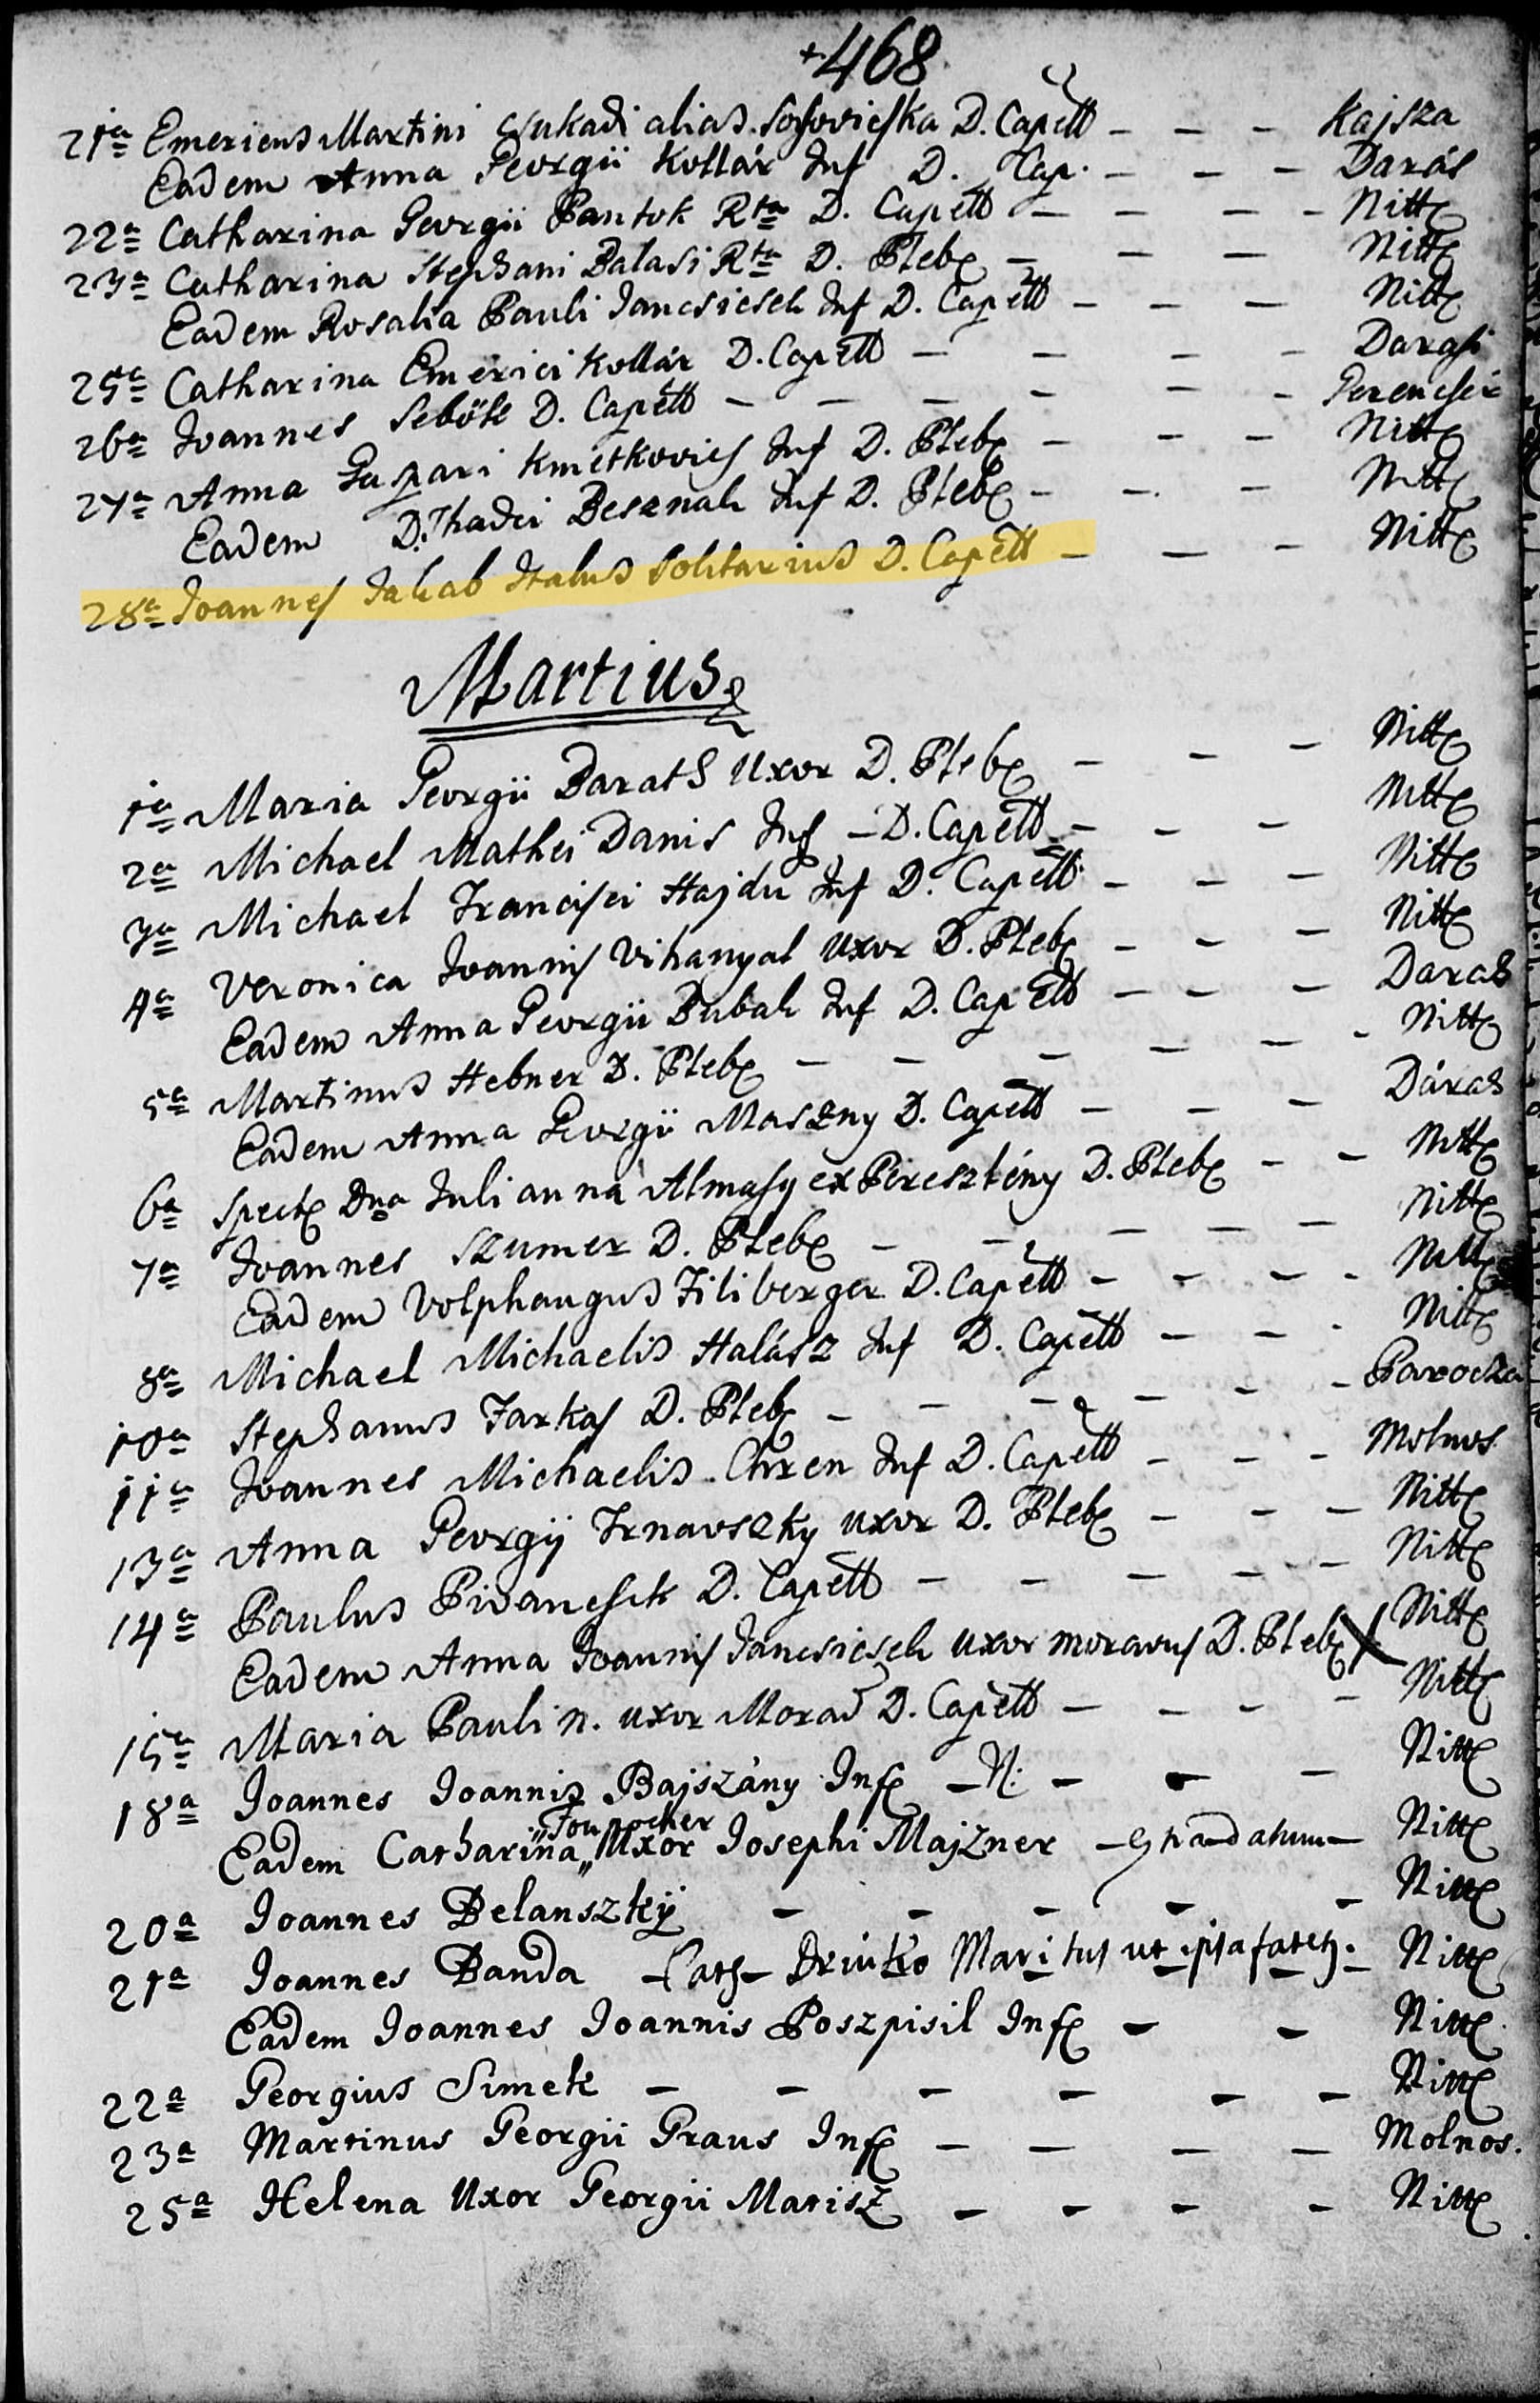 +468.
21a Emericus Martini Csukadi alias D. Capell Kajsza
Eadem Anna Georgii Kollár Inf D. Cap. Darás
22a Catharina Georgii Pantok Rta D. Capell Nitt
23a Catharina Stephani Balasi Rta D. Pleb Nitt
Eadem Rosalia Pauli Jancsicsek Inf D. Capell Nitt
25a Catharina Emerici Kollár D. Capell Darasi
26a Joannes Sebök D. Capell Gerencser
27a Anna Gaspari Kmetkovics Inf D. Pleb Nitt
Eadem D. Thadei Besznak Inf D. Pleb Nitt
28a Joannes Jakab Italus Solitarius D. Capell Nitt
Martius
1a Maria Georgii Barath Uxor D. Pleb Nitt
2a Michael Mathei Danis Inf D. Capell Nitt
3a Michael Francisci Hajdu Inf D. Capell Nitt
4a Veronica Joannis Vihanyal Uxor D. Pleb Nitt
Eadem Anna Georgii Bubak Inf D. Capell Daras
5a Martinus Hebner D. Pleb Nitt
Eadem Anna Georgii Maszny D. Capell Dáras
6a Spect Dna Julianna Almasy ex Pereszlény D. Pleb Nitt
7a Joannes Szumer D. Pleb Nitt
Eadem Volphangus Filiberger D. Capell Nitt
8a Michael Michaelis Halász Inf D. Capell Nitt
10a Stephanus Farkas D. Pleb Parocza
11a Joannes Michaelis Chren Inf D. Capell Molnos
13a Anna Georgij Trnavszky uxor D. Pleb Nitt
14a Paulus Pivancsik D. Capell Nitt
Eadem Anna Joannis Jancsicsek uxor moravus D. Pleb Nitt
15a Maria Pauli n. uxor Morad D. Capell Nitt
18a Joannes Joannis Bajszány Inf N. Nitt
Eadem Catharina Uxor Josephi Majzner Nitt
20a Joannes Belanszkÿ Nitt
21a Joannes Banda Cath Drinko Maritus ut ipsa Nitt
Eadem Joannes Joannis Poszpisil Inf Nitt
22a Georgius Simek Nitt
23a Martinus Georgii Graus Inf Molnos.
25a Helena Uxor Georgii Matisz Nitt